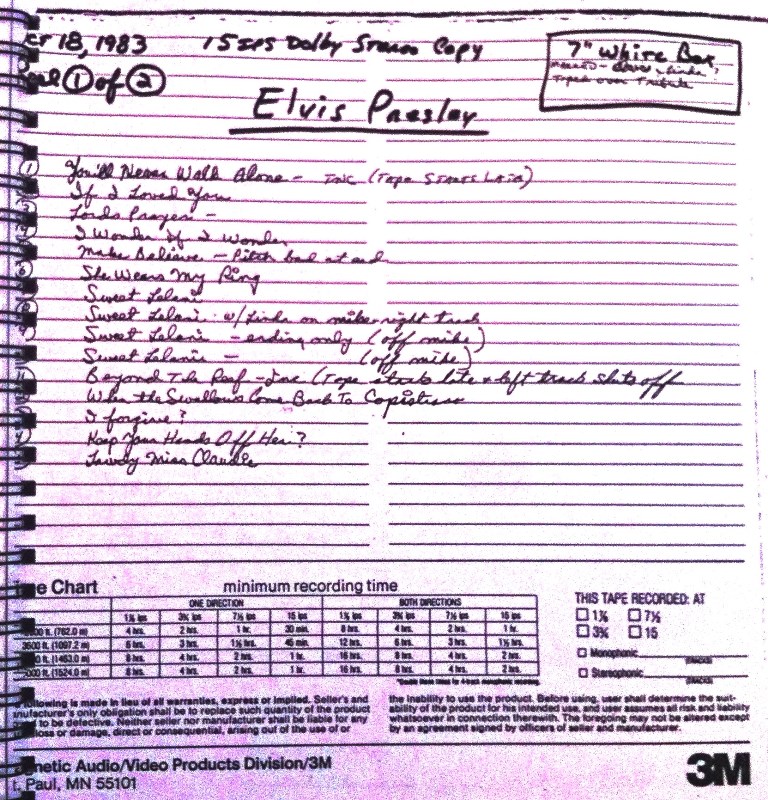 18, 1983 15 IPS Dolby Stereo Copy
① of ②
7" White Box
Taped over Tribute
Elvis Presley
① You'll Never Walk Alone - INC (Tape Starts Late)
If I Loved You
Lords Prayer -
I Wonder If I Wonder
Make Believe - Pitch bad at end
She Wears My Ring
Sweet Leilani
Sweet Leilani - w/Linda on mike - right track
Sweet Leilani - ending only (off mike)
Sweet Leilani - (off mike)
Beyond The Reef - Inc (Tape starts late + left track shuts off
When the Swallows Come Back To Capistrano
I forgive?
Keep Your Hands Off Her?
Lawdy Miss Clawdle
e Chart minimum recording time
ONE DIRECTION BOTH DIRECTIONS
1⅞ ips 3¾ ips 7½ ips 15 ips 1⅞ ips 3¾ ips 7½ ips 15 ips
ft. (762.0 m) 4 hrs. 2 hrs. 1 hr. 30 min. 8 hrs. 4 hrs. 2 hrs. 1 hr.
3600 ft. (1097.2 m) 6 hrs. 3 hrs. 1½ hrs. 45 min. 12 hrs. 6 hrs. 3 hrs. 1½ hrs.
ft. (1463.0 m) 8 hrs. 4 hrs. 2 hrs. 1 hr. 16 hrs. 8 hrs. 4 hrs. 2 hrs.
ft. (1524.0 m) 8 hrs. 4 hrs. 2 hrs. 1 hr. 16 hrs. 8 hrs. 4 hrs. 2 hrs.
THIS TAPE RECORDED: AT
☐ 1⅞ ☐ 7½
☐ 3¾ ☐ 15
☐ Monophonic
(TRACKS)
☐ Stereophonic
(TRACKS)
ollowing is made in lieu of all warranties, express or implied. Seller's and
nufacturer's only obligation shall be to replace such quantity of the product
to be defective. Neither seller nor manufacturer shall be liable for any
loss or damage, direct or consequential, arising out of the use of or
the inability to use the product. Before using, user shall determine the suit-
ability of the product for his intended use, and user assumes all risk and liability
whatsoever in connection therewith. The foregoing may not be altered except
by an agreement signed by officers of seller and manufacturer.
netic Audio/Video Products Division/3M
t. Paul, MN 55101
3M